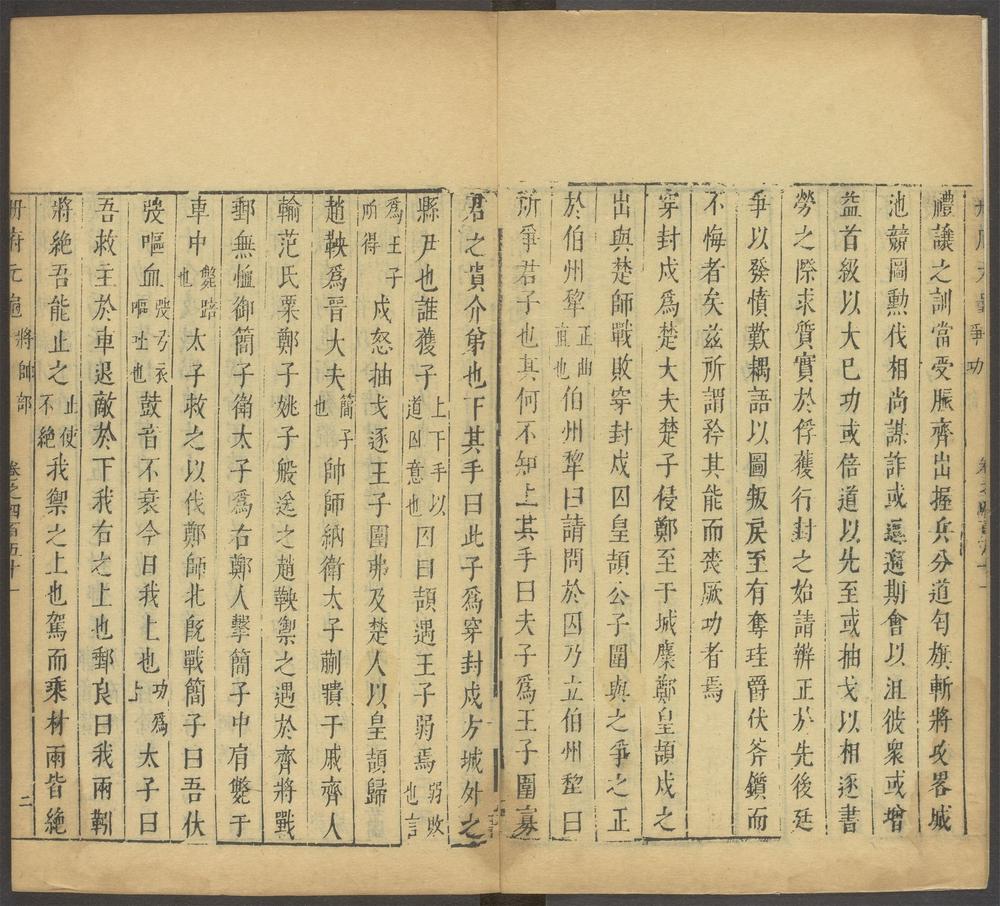 爭功
禮讓之訓當受脤齊出握兵分道勾旗斬將攻畧城
池競圖勲伐相尚謀詐或逗遛期會以沮彼衆或增
益首級以大巳功或倍道以先至或抽戈以相逐書
勞之際求質實於俘獲行封之始請辨正於先後廷
爭以發憤歎耦語以圖叛戾至有奪珪爵伏斧鑕而
不悔者矣兹所謂矜其能而喪厥功者焉
穿封戍爲楚大夫楚子侵鄭至于城麇鄭皇頡戍之
出與楚師戰敗穿封戍囚皇頡公子圍與之爭之正
於伯州犂正曲直也伯州犂曰請問於囚乃立伯州犂曰
所爭君子也其何不知上其手曰夫子爲王子圍寡
君之貴介弟也下其手曰此子爲穿封戍方城外之
縣尹也誰獲子上下手以道囚意也囚曰頡遇王子弱焉弱敗也言
爲王子所得戍怒抽戈逐王子圍弗及楚人以皇頡歸
趙鞅爲晉大夫簡子也帥師納衛太子蒯聵于戚齊人
輸范氏粟鄭子姚子般送之趙鞅禦之遇於齊將戰
郵無恤御簡子衛太子爲右鄭人擊簡子中肩斃于
車中斃踣也太子救之以伐鄭師北旣戰簡子曰吾伏
弢嘔血弢弓衣嘔吐也鼓音不衰今日我上也功爲上太子曰
吾救主於車退敵於下我右之上也郵良曰我兩靷
將絕吾能止之止使不絕我禦之上也駕而乘材兩皆絕
冊府元龜將帥部 卷之四百五十一 二